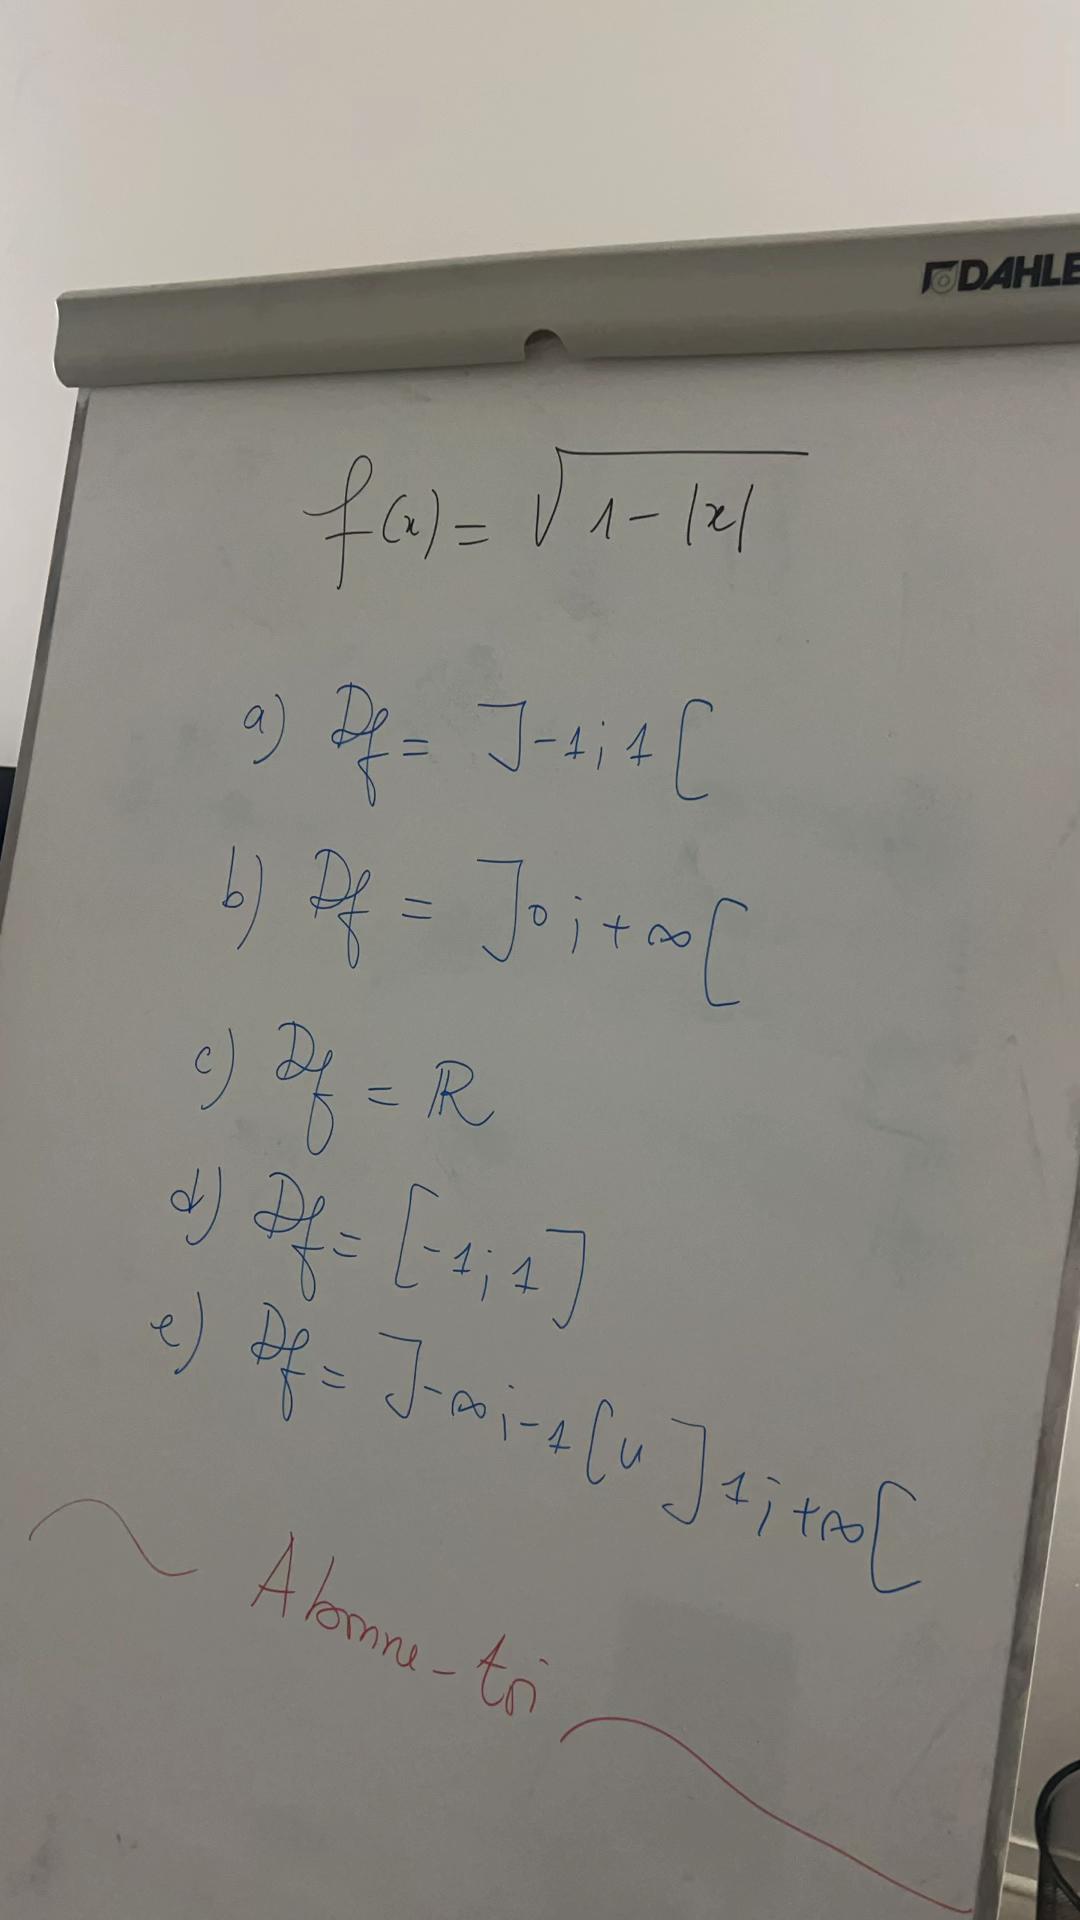 DAHLE
f(x) = √1-|x|
a) Df = ]-1; 1[
b) Df = ]0; +∞[
c) Df = ℝ
d) Df = [-1; 1]
e) Df = ]-∞; -1[ ∪ ]1; +∞[
Abonne-toi